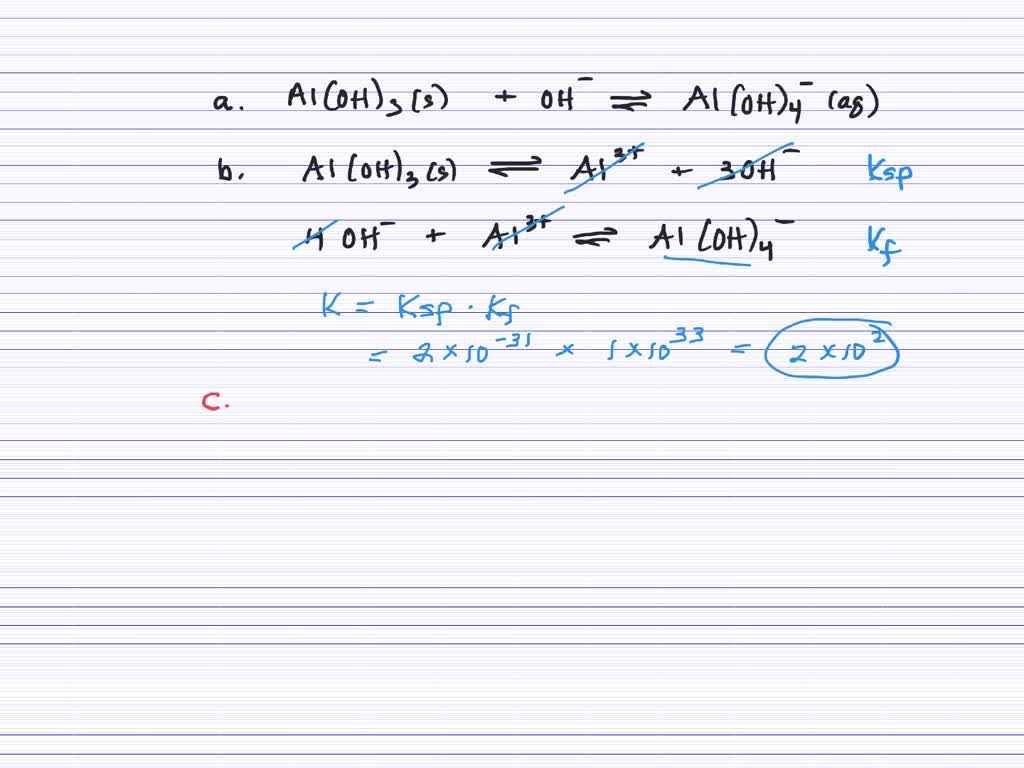 a. Al(OH)₃(s) + OH⁻ ⇌ Al(OH)₄⁻ (aq)
b. Al(OH)₃(s) ⇌ Al³⁺ + 3OH⁻ Ksp
4 OH⁻ + Al³⁺ ⇌ Al(OH)₄⁻ Kf
K = Ksp · Kf
= 2 × 10⁻³¹ × 1 × 10³³ = 2 × 10²
c.